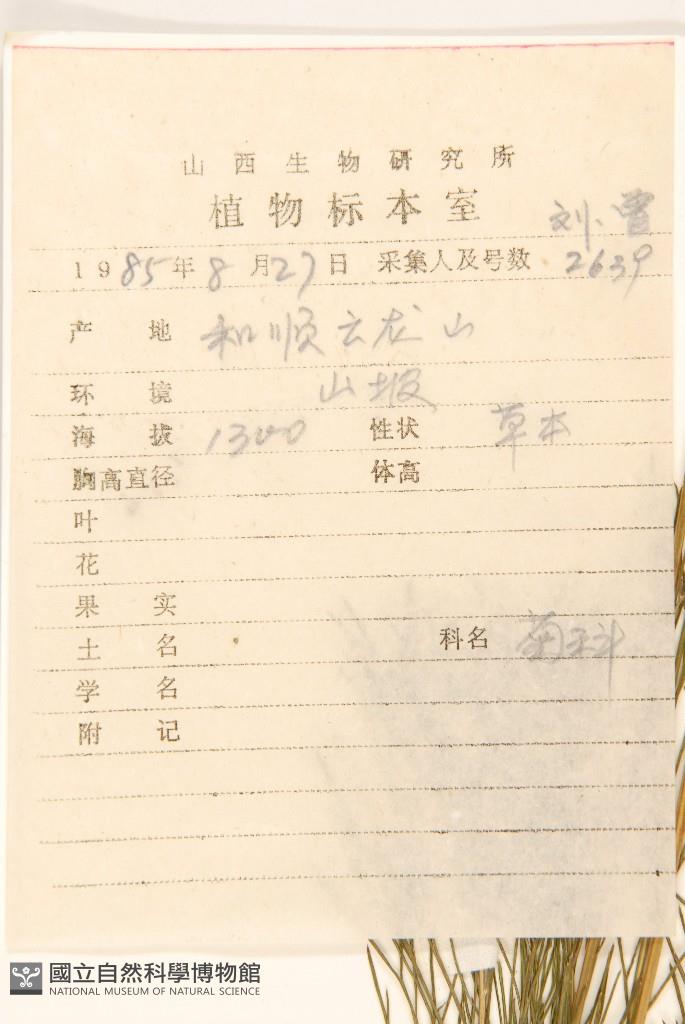 山西生物研究所
植物标本室
刘、曾
1985年8月27日 采集人及号数 2639
产地 和顺云龙山
环境 山坡
海拔 1300 性状 草本
胸高直径 体高
叶
花
果实
土名 科名 菊科
学名
附记
國立自然科學博物館
NATIONAL MUSEUM OF NATURAL SCIENCE